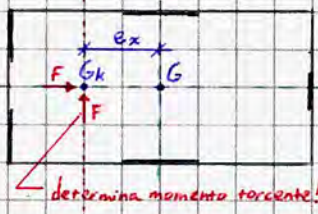 ex
F Gk G
F
determina momento torcente!